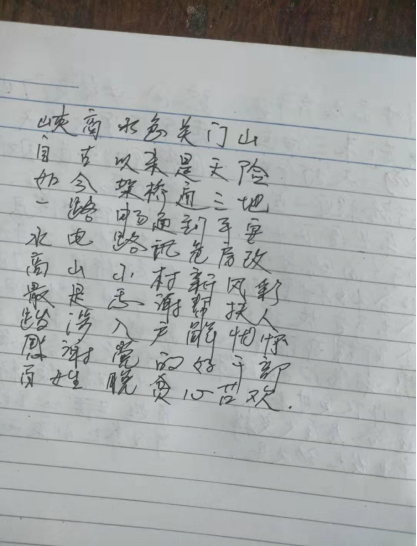 峡高水急关门山
自古以来是天险
如今架桥通三地
一路畅通到平
水电路讯危房改
高山小村新风彩
最是感谢帮扶人
踏浪入户
感谢党的好干部
百姓脱贫心苦欢.